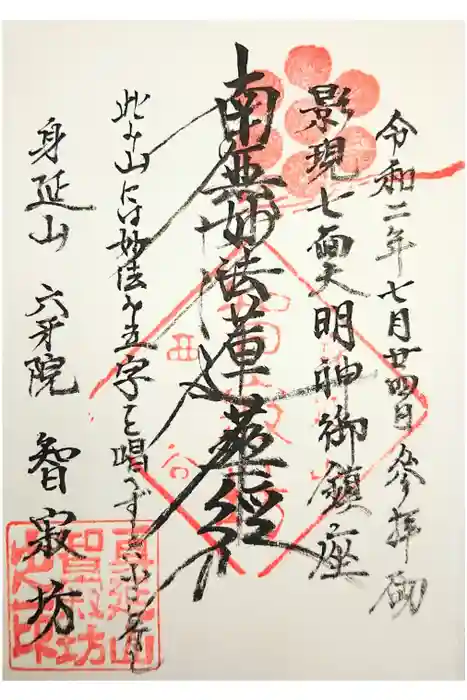 令和二年七月廿四日参拝
影現七面大明神御鎮座
南無妙法蓮華経
此み山には妙法の五字を唱
身延山 六牙院 智寂坊